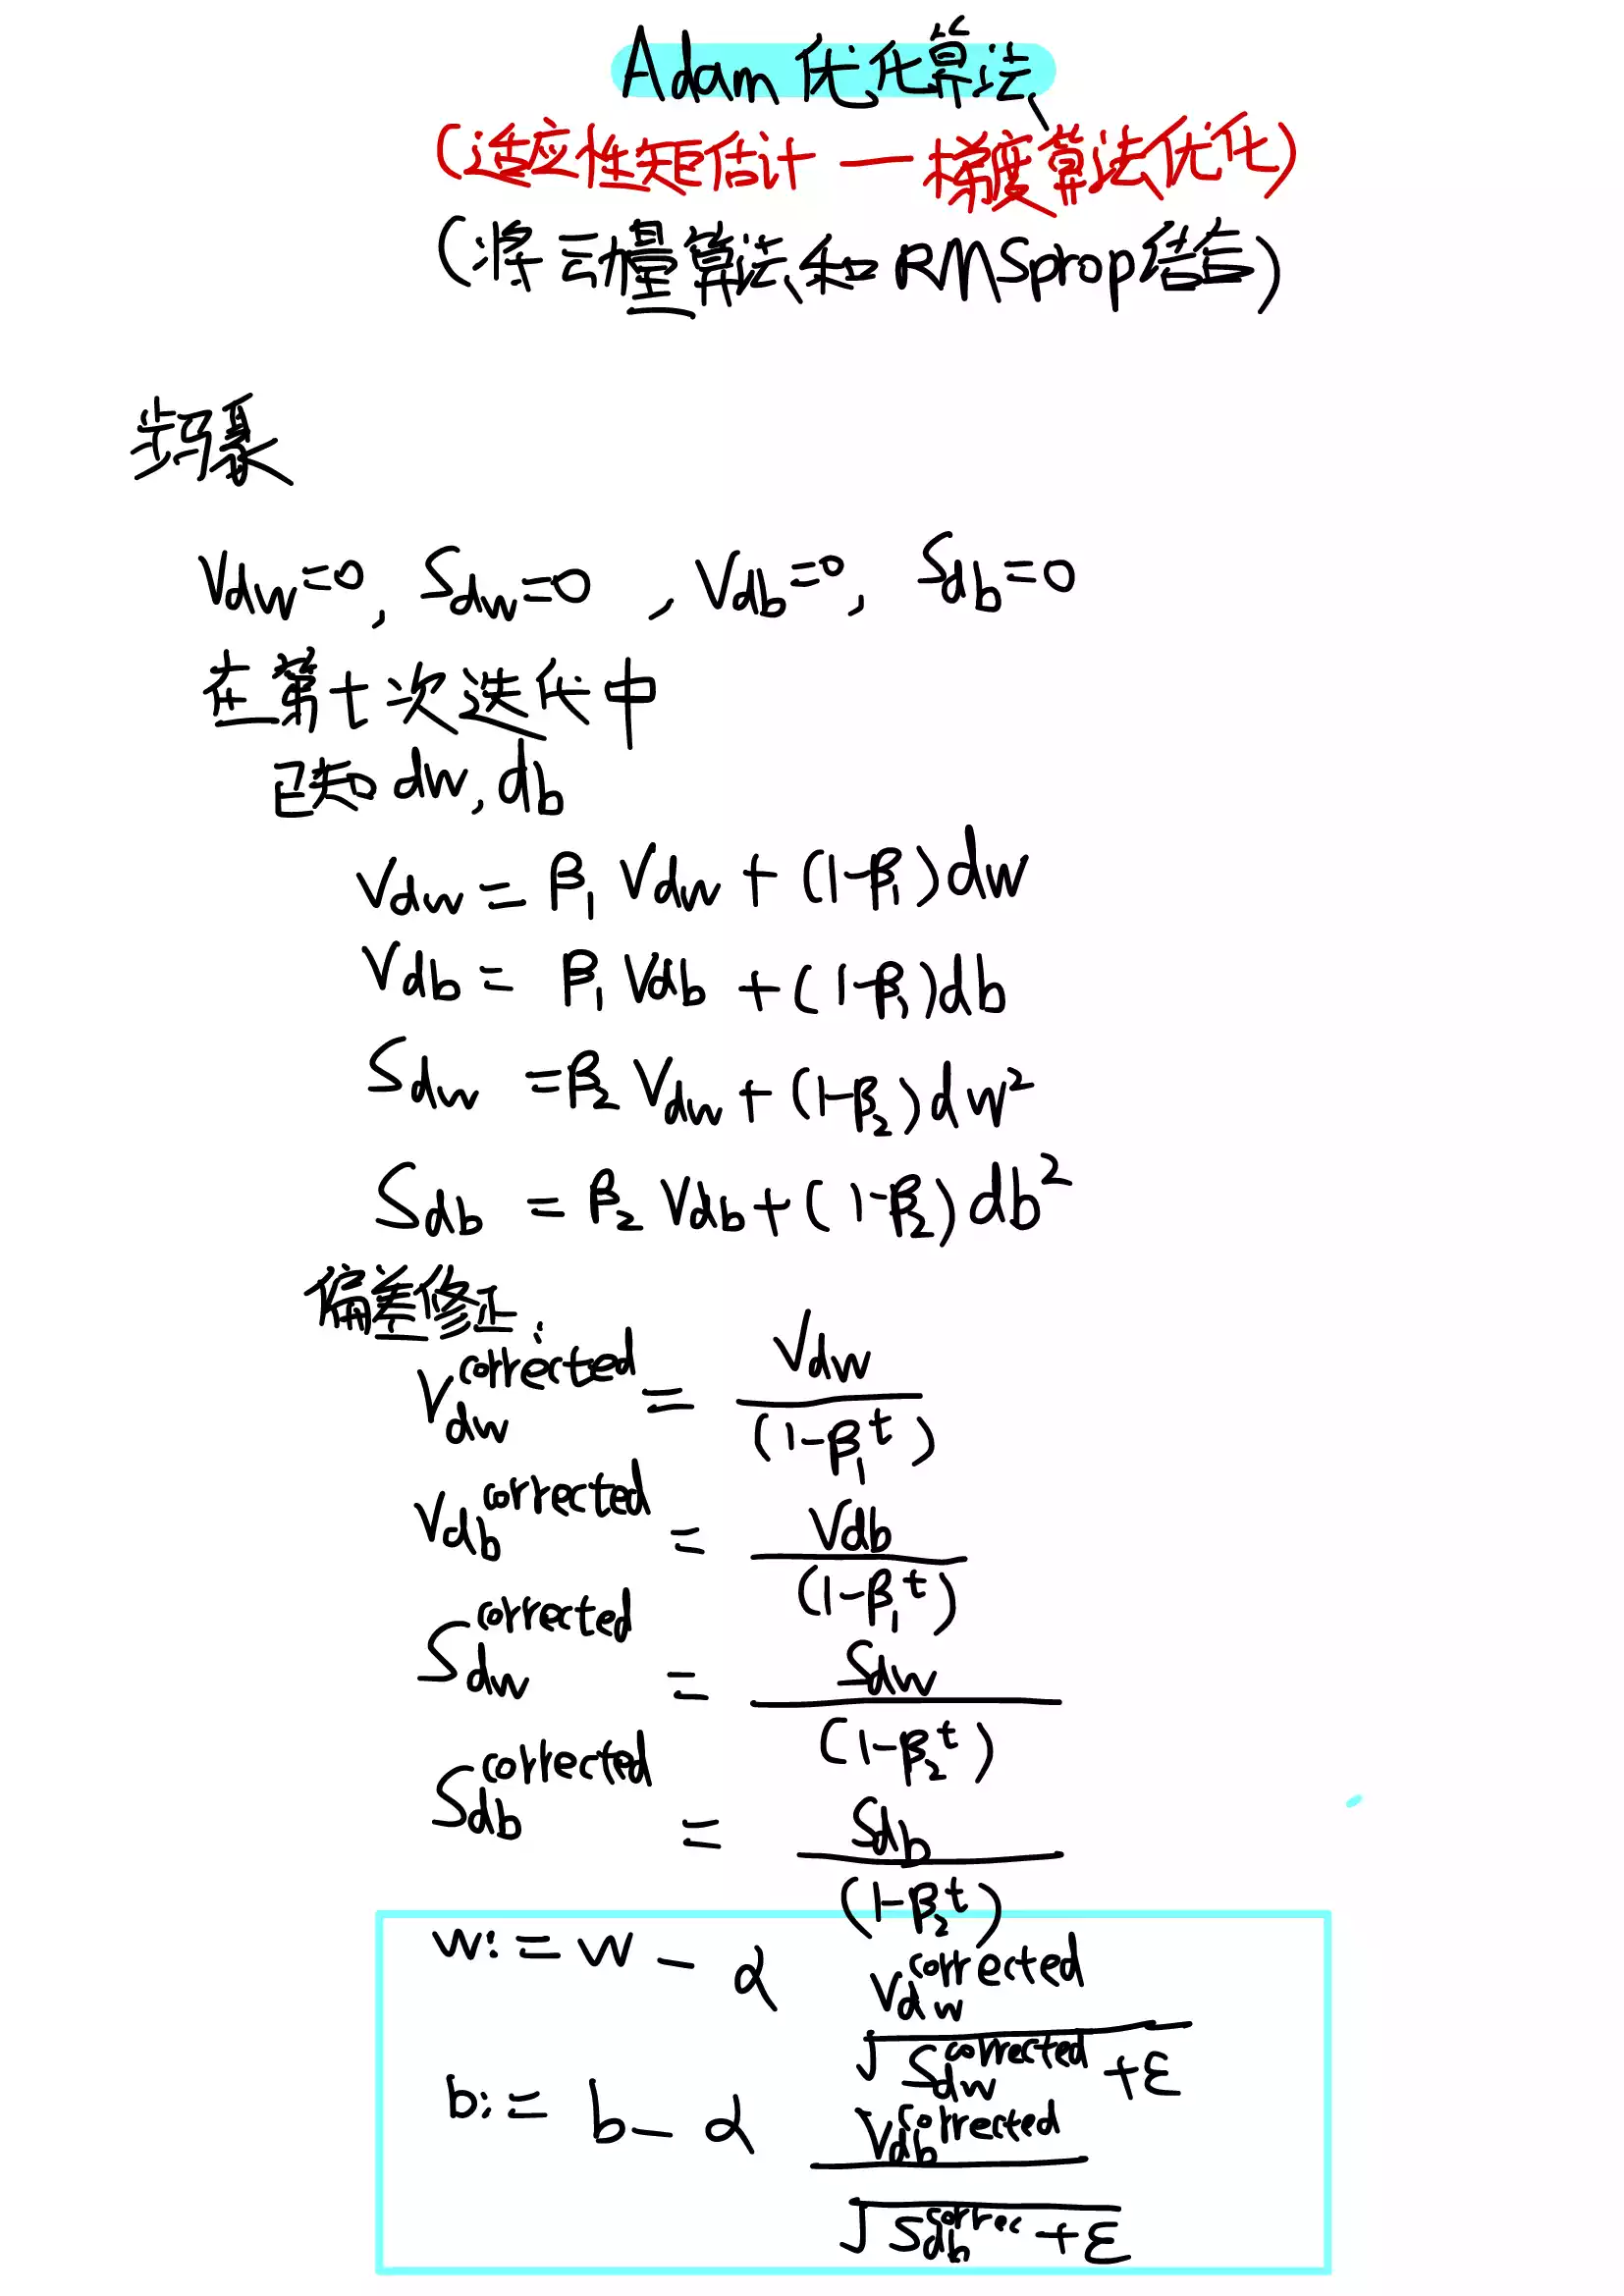 Adam 优化算法
(适应性矩估计 — 梯度算法优化)
(将动量算法和RMSprop结合)
步骤
Vdw=0, Sdw=0, Vdb=0, Sdb=0
在第t次迭代中
已知 dw, db
Vdw = β₁ Vdw + (1-β₁)dw
Vdb = β₁ Vdb + (1-β₁)db
Sdw = β₂ Vdw + (1-β₂)dw²
Sdb = β₂ Vdb + (1-β₂)db²
偏差修正:
Vdw^corrected = Vdw / (1-β₁^t)
Vdb^corrected = Vdb / (1-β₁^t)
Sdw^corrected = Sdw / (1-β₂^t)
Sdb^corrected = Sdb / (1-β₂^t)
w := w - α Vdw^corrected / (√Sdw^corrected + ε)
b := b - α Vdb^corrected / √(Sdb^correc + ε)